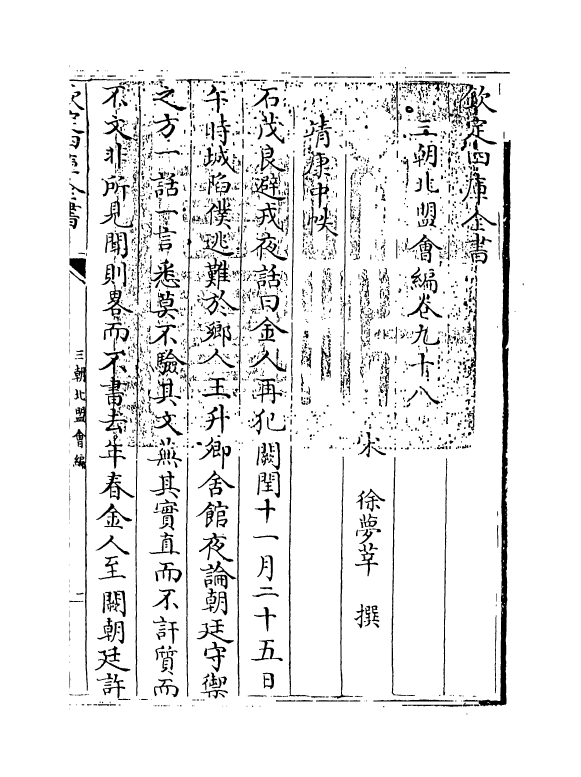 欽定四庫全書
三朝北盟會編卷九十八
宋 徐夢莘 撰
靖康中帙
石茂良避戎夜話曰金人再犯闕閏十一月二十五日
午時城陷僕逃難於鄉人王升卿舍館夜論朝廷守禦
之方一話一言悉莫不驗其文蕪其實直而不訐質而
不文非所見聞則畧而不書去年春金人至闕朝廷許
欽定四庫全書
三朝北盟會編
二